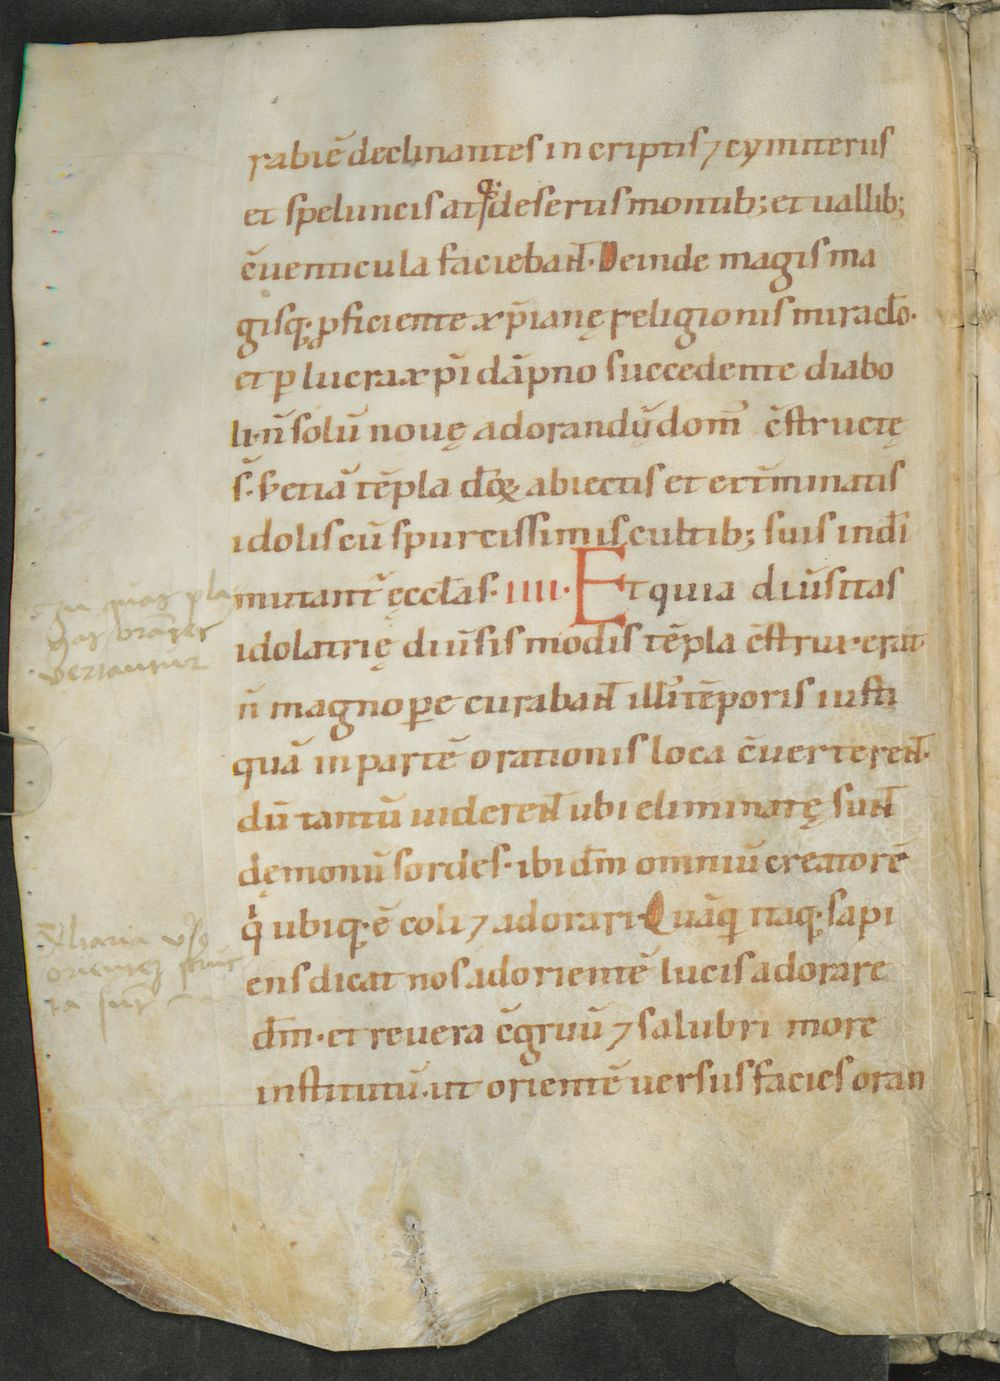 rabiē declinantes in criptis ⁊ cymiteriis
et speluncis atq; desertis montib; et uallib;
c̄uenticula faciebant. Deinde magis ma
gisq; ꝓficiente xp̄ianę religionis miraclo.
et ꝑ lucra xp̄i dāpno succedente diabo
li. n̄ solū nouę adorandū dom̄ c̄structę
s̄. s; etiā tēpla dōꝝ abiectis et eliminatis
idolis cū spurcissimis cultib; suis in dī
mutant᷑ ęcclas. IIII. Et quia diūsitas
idolatrię diūsis modis tēpla c̄struxerat
n̄ magnopere curabant illī tēporis iusti
quā in partē orationis loca c̄uerterent.
dū tantū uiderent ubi eliminatę sunt
dęmonū sordes. ibi dm̄ omniū creatorē
qi ubiq; ē coli ⁊ adorari. Quāq̄ itaq; sapi
ens dicat nos ad orientē lucis adorare
dm̄. et reuera c̄gruū ⁊ salubri more
institutū. ut orientē uersus facies oran
In quas pla
gas orātes
vertantur
Altaria vsꝰ
orientez struc
ta sunt